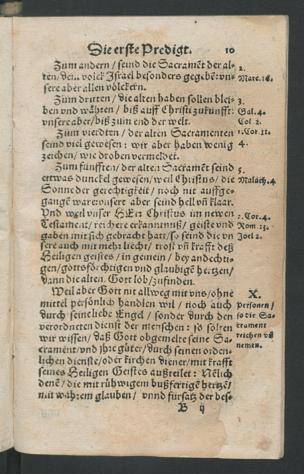 Die erste Predigt. 10
Zum andern / seind die Sacramēt der al-
ten / dem volck Israel besonders gegeben: vn-
sere aber allen völckern.
2.
Mate. 16.
Zum dritten / die alten haben sollen blei-
ben vnd währen / biß auff Christi zukunfft:
vnsere aber / biß zum end der welt.
3.
Gal. 4.
Col. 2.
Zum vierdten / der alten Sacramenten
seind viel gewesen: wir aber haben wenig
zeichen / wie droben vermeldet.
1. Cor. 11.
4.
Zum fünfften / der alten Sacramēt seind
ettwas dunckel gewesen / weil Christus / die
Sonne der gerechtigkeit / noch nit auffge-
gangē ware: vnsere aber seind hell vn̄ klaar.
5.
Malach. 4
Vnd weil vnser HErr Christus im newen
Testament / reichere erkanntnuß / geiste vnd
gaben mit sich gebracht hat / so seind die vn-
sere auch mit mehr liecht / trost vn̄ krafft deß
Heiligen geistes / in gemein / bey andechti-
gen / gottsförchtigen vnd glaubigē hertzen /
dann die alten. Gott lob / zufinden.
2. Cor. 4.
Rom. 13.
Joel 2.
Weil aber Gott nit allweg mit vns / ohne
mittel persönlich handlen wil / noch auch
durch seine liebe Engel / sonder durch den
verordneten dienst der menschen: so sollen
wir wissen / daß Gott obgemelte seine Sa-
crament / vnd ihre güter / durch seinen orden-
lichen dienste / oder kirchen diener / mit krafft
seines Heiligen Geistes außteilet: Nēlich
denē / die mit rüwigem bußfertigē hertzē /
mit wahrem glauben / vnnd fürsatz der bes-
X.
Personen /
so die Sa-
crament
reichen vn̄
nemen.
B ij